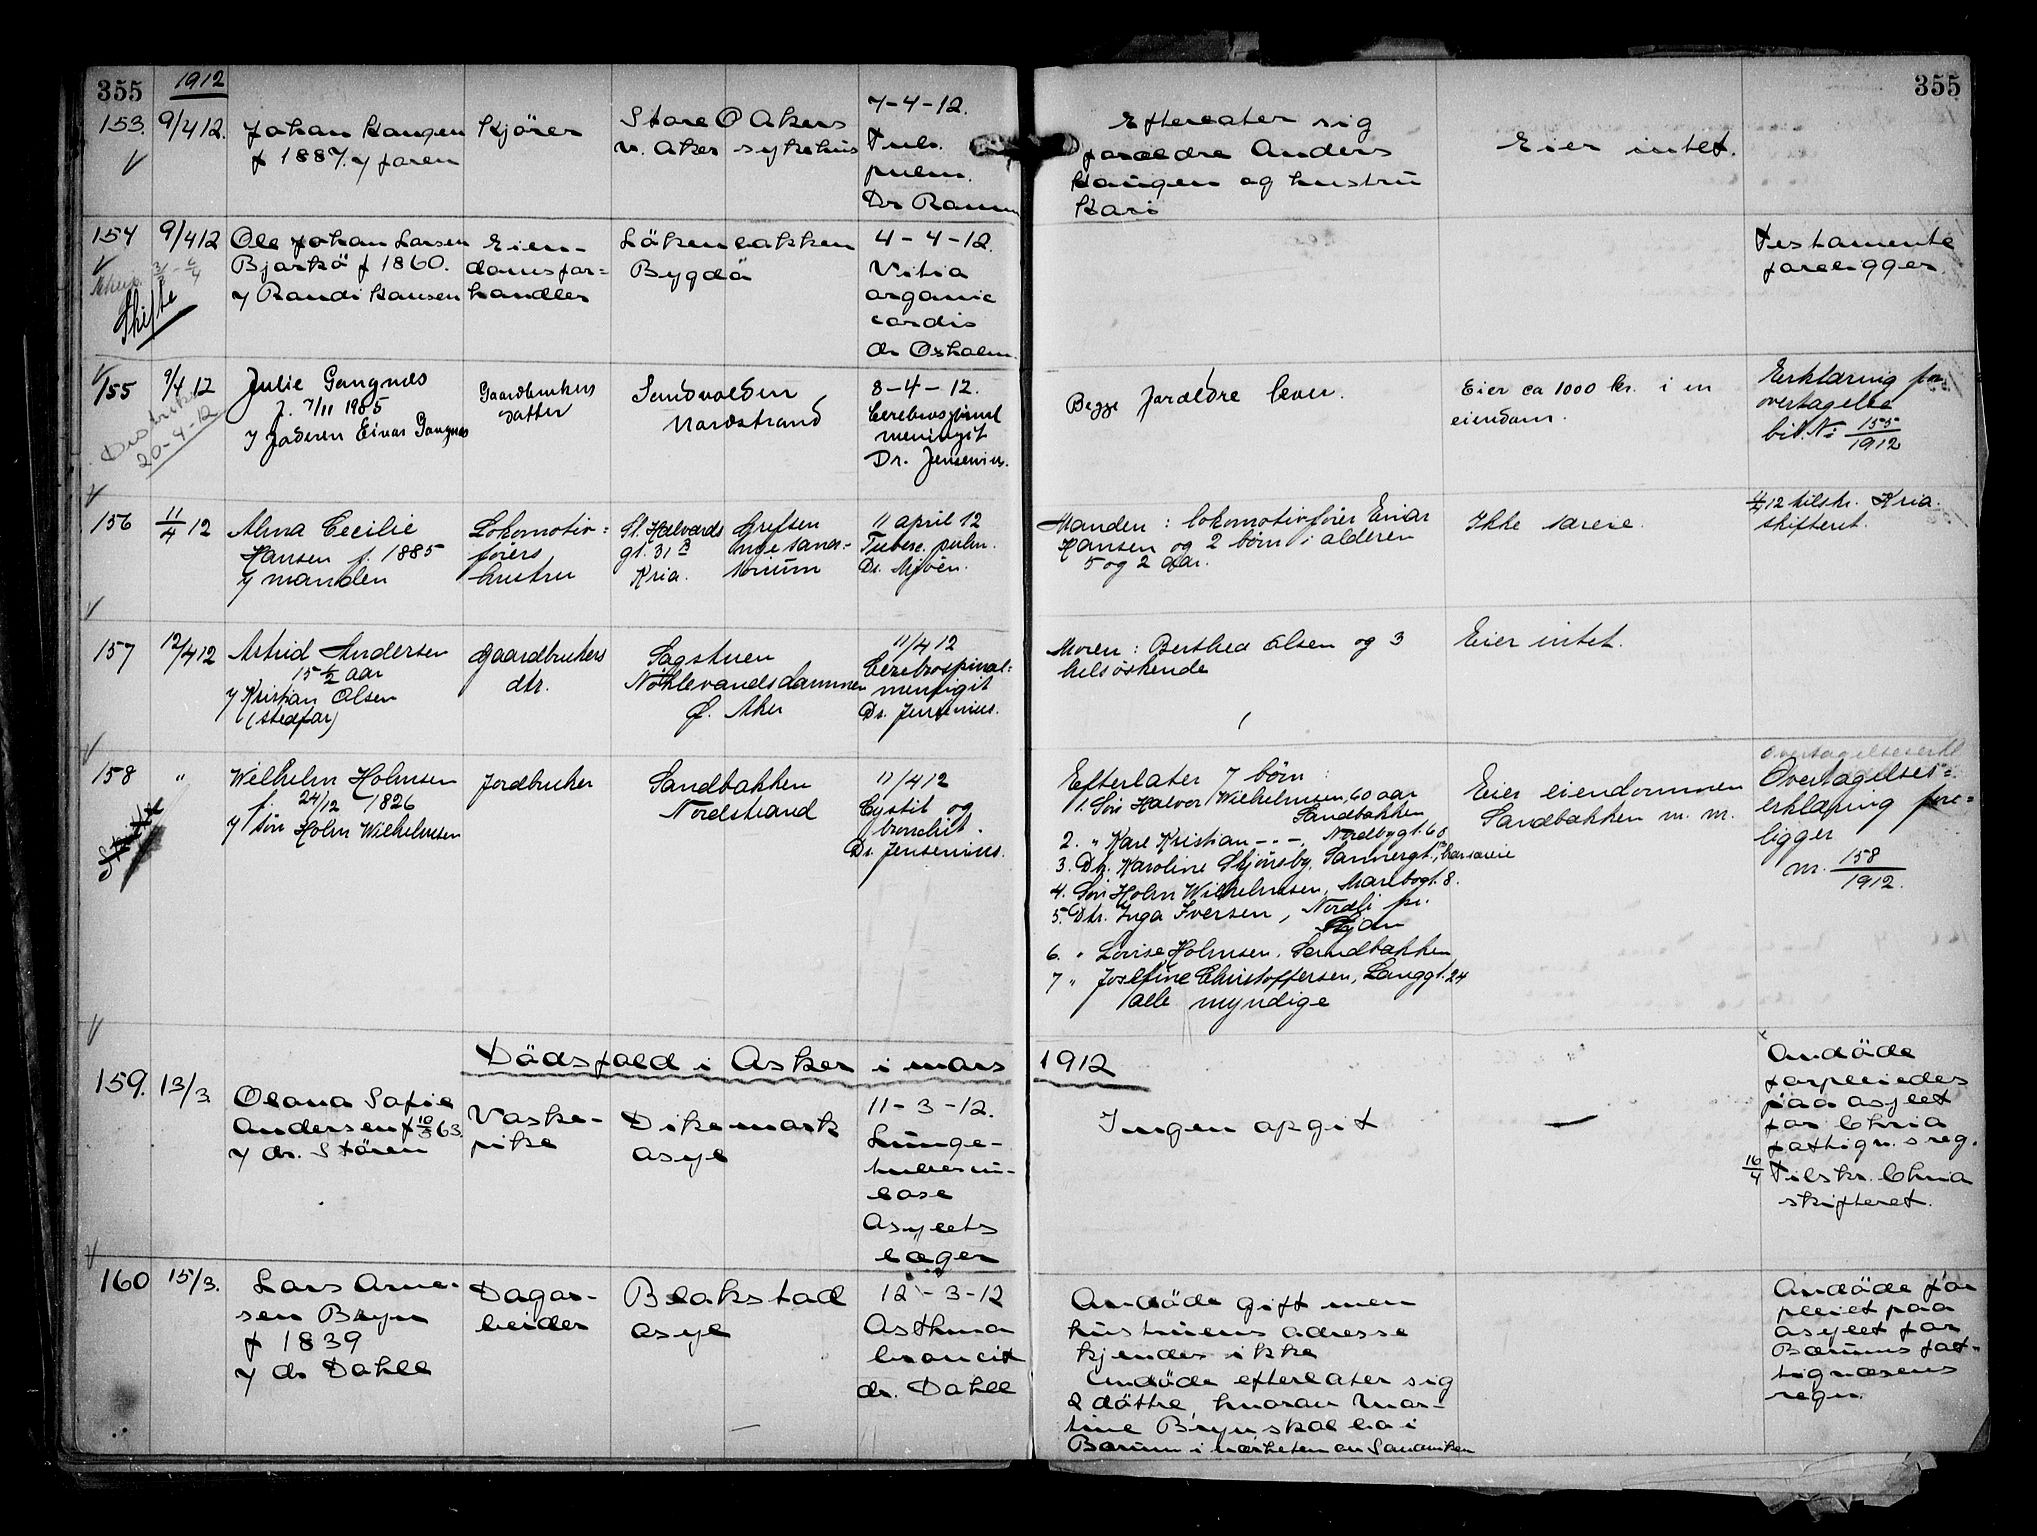 355
1912
355
153.
9/4 12.
Johan Haugen
f 1887. y faren
Kjörer
Store Ö Akers
v. Aker sykehus
7-4-12.
Tub.
pulm.
Dr Ramm
Efterlater sig
forældre Anders
Haugen og hustru
Kari
Eier intet.
154
9/4 12
Skifte
Ole Johan Larsen
Bjarkö f 1860.
y Randi Hansen
Eien-
domsfor=
handler
Lökenbakken
Bygdö
4-4-12.
Vitia
organic
cordis
dr Oxholm.
Testamente
foreligger
155
9/4 12
20-4-12
Julie Gangnes
f. 7/11 1905
y faderen Einar Gangnes
Gaardbrukers
datter
Sandvolden
Nordstrand
8-4-12.
Cerebrospinal
meningit
Dr. Jensenius.
Begge forældre lever.
Eier ca 1000 kr. i en
eiendom.
Erklæring for
overtagelse
bil. No 155/1912
156
11/4 12
Alma Cecilie
Hansen f. 1885
y manden
Lokomotiv=
förers
hustru
St. Halvards
gt. 31 3
Kria.
Grefsen
nye sana-
torium
11 april 12
Tuberc. pulm.
Dr. Mjøen.
Manden: lokomotivförer Einar
Hansen og 2 børn i alderen
5 og 2 aar.
Ikke særeie.
12 tilskr. Kria.
skifteret.
157
12/4 12
Astrid Andersen
15 1/2 aar
y Kristian Olsen
(stedfar)
Gaardbrukers
dtr.
Sagstuen
Nöklevandsdammen
Ø. Aker
11/4 12
Cerebrospinal=
meningit
Dr. Jensenius.
Moren: Berthea Olsen og 3
helsöskende
Eier intet.
158
"
Wilhelm Holmsen
f. 24/12 1826
y sön Holm Wilhelmsen
Jordbruker
Sandbakken
Nordstrand
11/4 12
Cystit og
bronchit.
Dr. Jensenius.
Efterlater 7 børn:
1. Sön Halvor Wilhelmsen, 60 aar
Sandbakken
2. " Karl Kristian -"-, Nordbygt. 60
3. Dtr. Karoline Skjönsby, Sannergt., har særeie
4. Sön Holm Wilhelmsen, Maribogt. 8.
5. Dtr. Inga Iversen, Nordli pr.
6. " Lovise Holmsen, Sandbakken
7 " Josefine Christoffersen, Langgt. 24
alle myndige
Eier eiendommen
Sandbakken m. m.
Overtagelseserkl
Overtagelses=
erklæring fore=
ligger
m. 158/1912.
Dödsfald i Asker i mars 1912
159.
13/3.
Olava Sofie
Andersen f 10/5 63
y dr. Stören
Vaske-
pike
Dikemark
asyl
11-3-12.
Lunge-
tuberku-
lose
Asylets
læger
Ingen opgit
—
Avdöde
forpleiedes
paa asylet
for Chria
fattigv.s reg.
16/4 Tilskr. Chria
skifteret.
160
15/3.
Lars Arne-
sen Bryn
f 1839
y dr Dahll
Dagar-
beider
Blakstad
asyl
12-3-12
Asthma
broncit
dr. Dahll
Avdöde gift men
hustruens adresse
kjendes ikke
Avdöde efterlater sig
2 döttre, hvorav Mar-
tine Bryn skal bo i
Bærum i nærheten av Sandviken
Avdöde for
pleiet paa
asylet for
Bærums fat-
tigvæsens
regn.